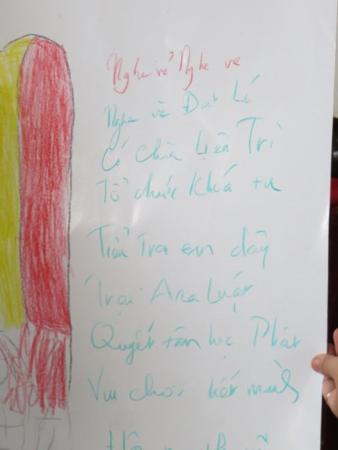 Nghe vẻ Nghe ve
Nghe vè Đức
Có Chùa Liên Trì
Tổ chức Khoá tu
em đây
Trại Ana Luật
Quyết tâm học Phật
Vui chơi hết mình